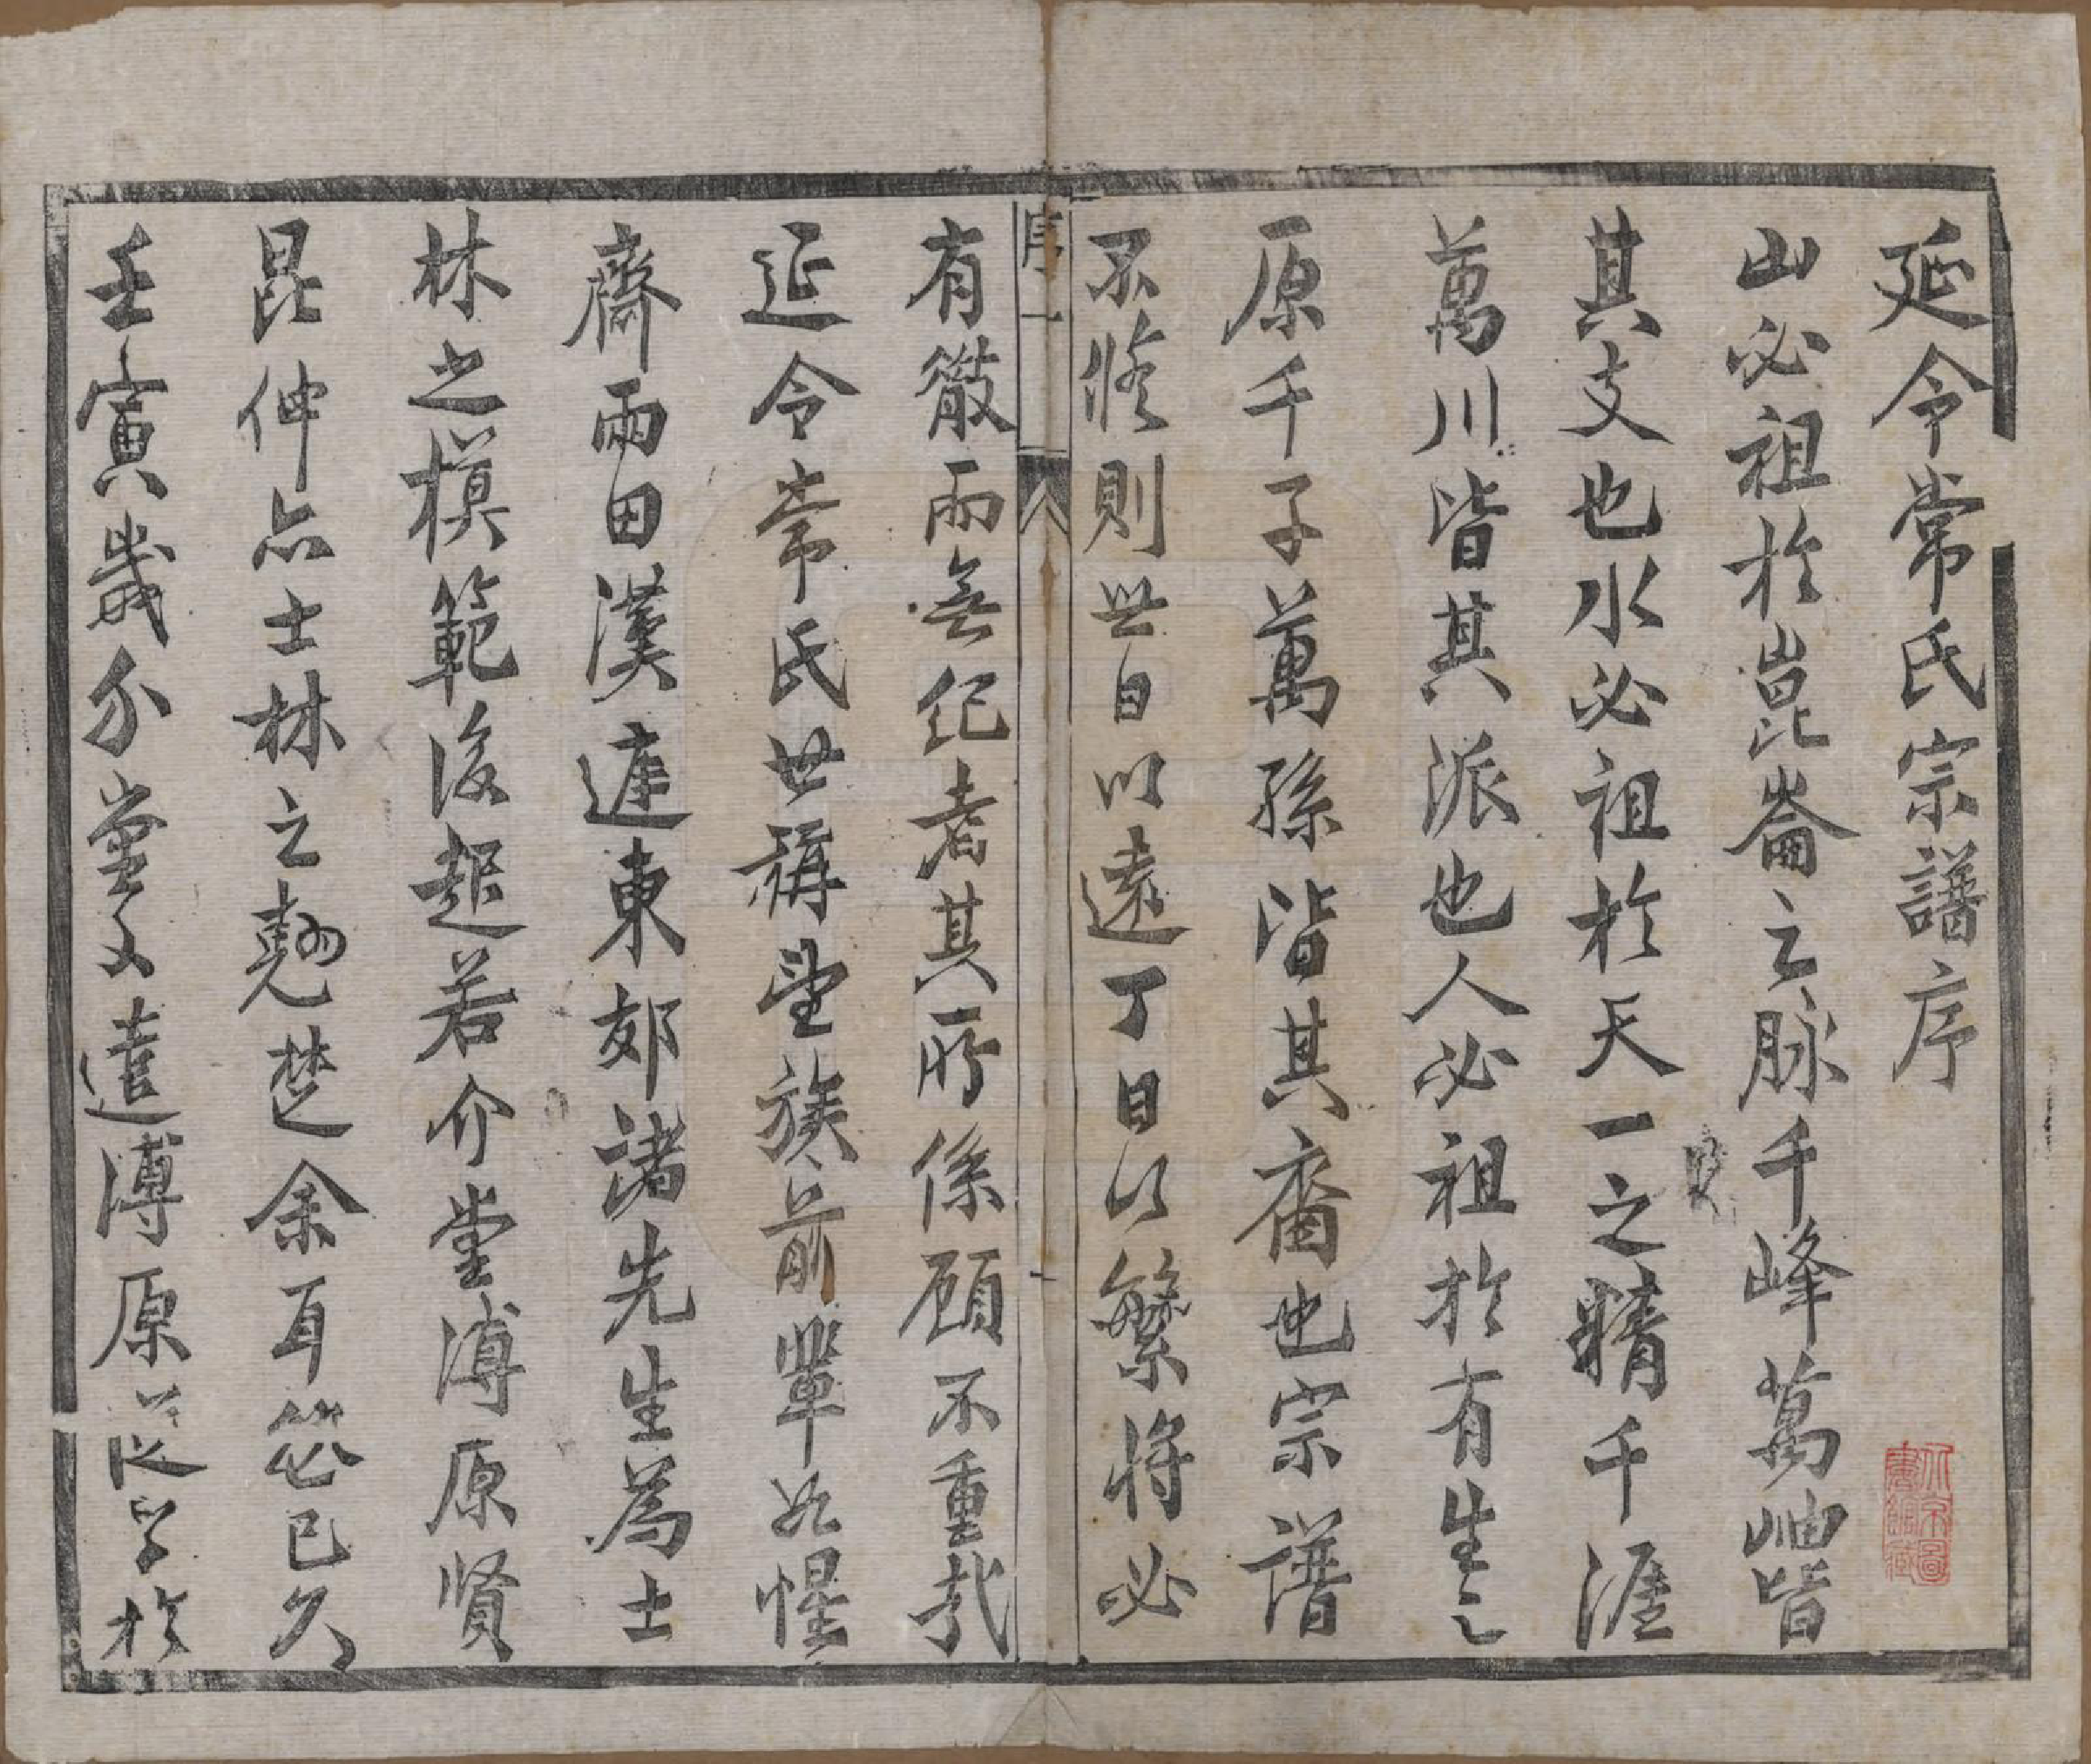 延令常氏宗譜序
山必祖於崑崙之脉千峰萬岫皆
其支也水必祖於天一之精千涯
萬川皆其派也人必祖於有生之
原千子萬孫皆其裔也宗譜
不脩則世日以遠丁日以繁將必
序 一
有散而無紀者其所係顧不重哉
延令常氏世稱望族前輩如惺
齋雨田漢遮東郊諸先生為士
林之模範後起若介堂溥原賢
昆仲亦士林之翹楚余耳茲已久
壬寅歲介堂文遣溥原從學於